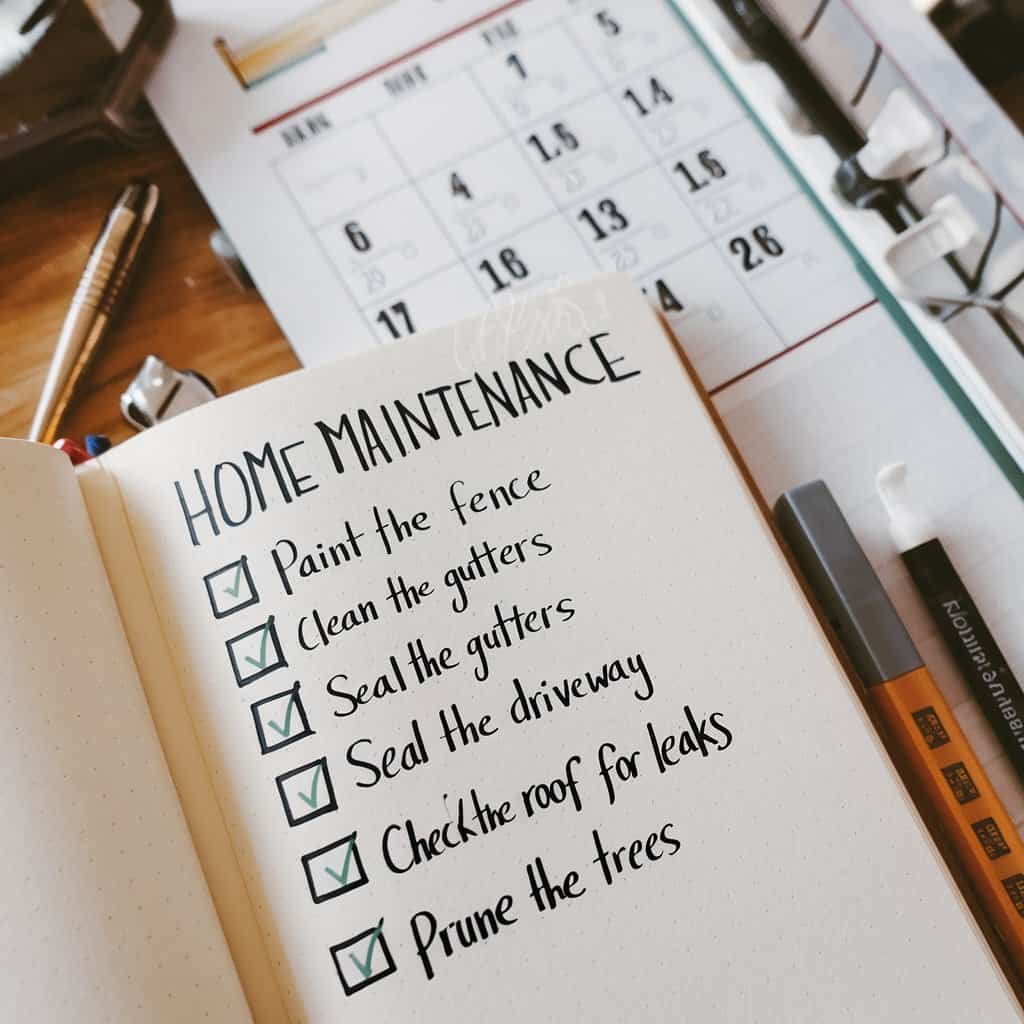 1
5
4
1.6
1.4
6
13
1.6
17
16
14
26
HOME MAINTENANCE
Paint the fence
Clean the gutters
Seal the gutters
Seal the driveway
Check the roof for leaks
Prune the trees